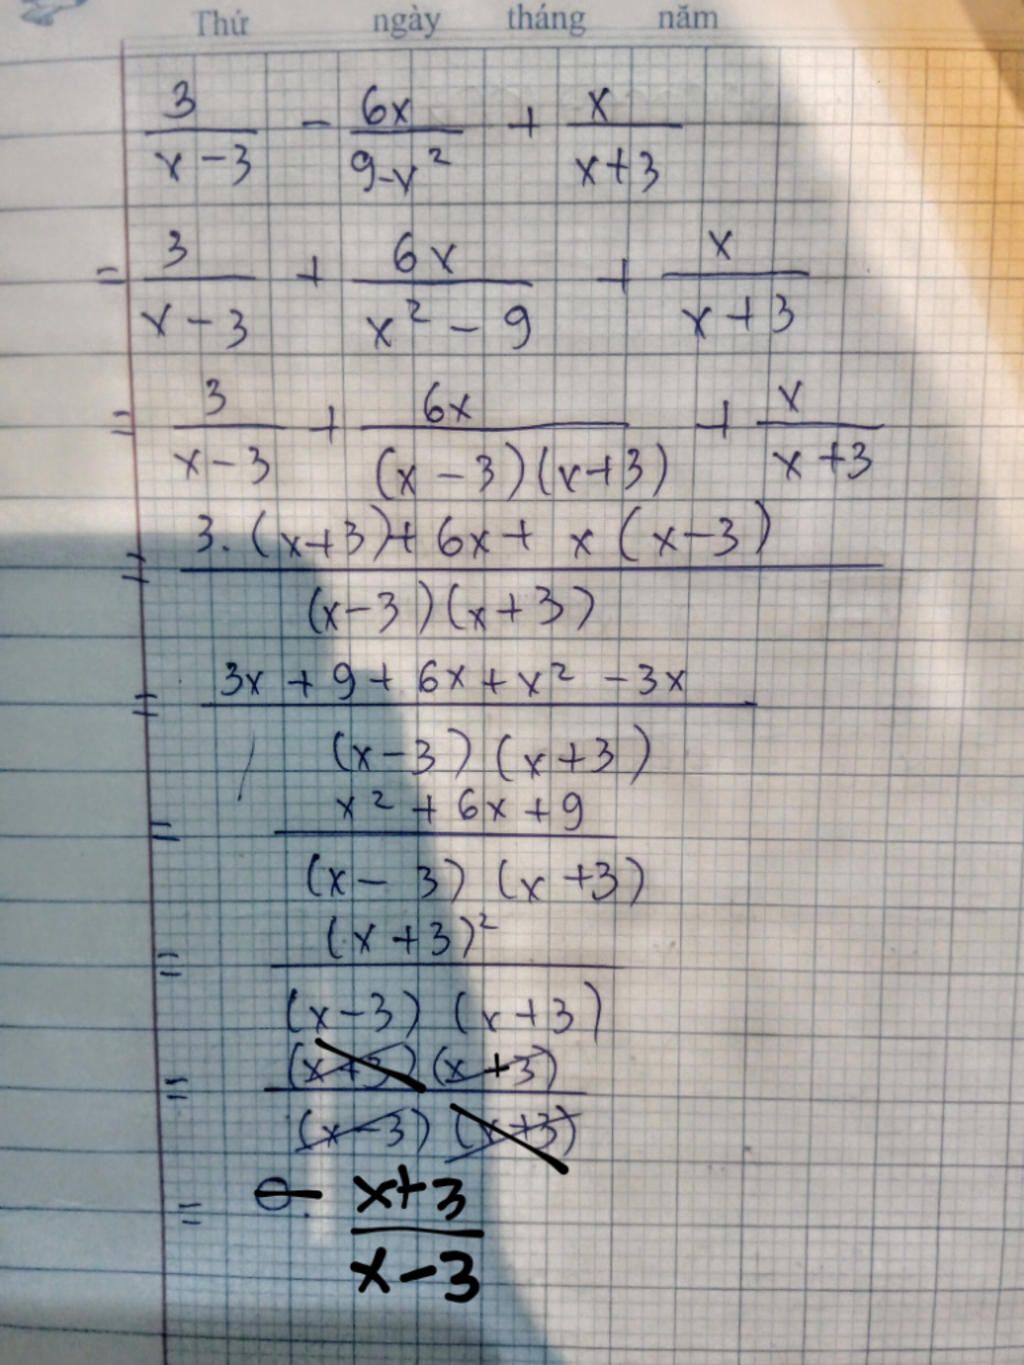 Thứ ngày tháng năm
3/(x-3) - 6x/(9-x²) + x/(x+3)
= 3/(x-3) + 6x/(x²-9) + x/(x+3)
= 3/(x-3) + 6x/((x-3)(x+3)) + x/(x+3)
= (3.(x+3)+6x+x(x-3))/((x-3)(x+3))
= (3x+9+6x+x²-3x)/((x-3)(x+3))
= (x²+6x+9)/((x-3)(x+3))
= (x+3)²/((x-3)(x+3))
= ((x+3)(x+3))/((x-3)(x+3))
= (x+3)/(x-3)